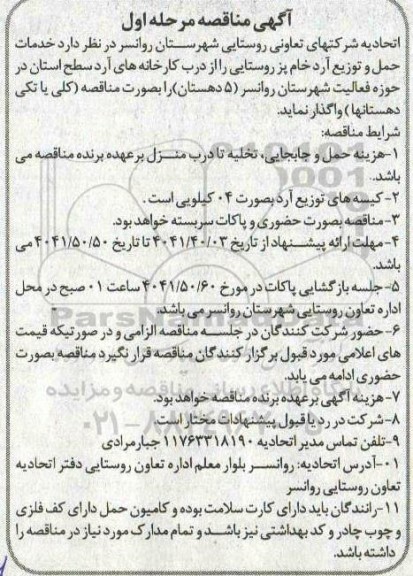 آگهی مناقصه مرحله اول
اتحادیه شرکتهای تعاونی روستایی شهرستان روانسر در نظر دارد خدمات
حمل و توزیع آرد خام پز روستایی را از درب کارخانه های آرد سطح استان در
حوزه فعالیت شهرستان روانسر (۵ دهستان) را بصورت مناقصه (کلی یا تکی
دهستانها) واگذار نماید.
شرایط مناقصه:
۱-هزینه حمل و جابجایی، تخلیه تا درب منزل بر عهده برنده مناقصه می
باشد.
۲- کیسه های توزیع آرد بصورت ۰۴ کیلویی است.
۳- مناقصه بصورت حضوری و پاکات سربسته خواهد بود.
۴- مهلت ارائه پیشنهاد از تاریخ ۴۰۴۱/۴۰/۰۳ تا تاریخ ۴۰۴۱/۵۰/۵۰ می
باشد.
۵- جلسه بازگشایی پاکات در مورخ ۴۰۴۱/۵۰/۶۰ ساعت ۰۱ صبح در محل
اداره تعاون روستایی شهرستان روانسر می باشد.
۶- حضور شرکت کنندگان در جلسه مناقصه الزامی و در صورتیکه قیمت
های اعلامی مورد قبول برگزار کنندگان مناقصه قرار نگیرد مناقصه بصورت
حضوری ادامه می یابد.
۷- هزینه آگهی بر عهده برنده مناقصه خواهد بود.
۸- شرکت در رد یا قبول پیشنهادات مختار است.
۹-تلفن تماس مدیر اتحادیه ۱۱۷۶۳۳۱۸۱۹۰ جبار مرادی
۰۱-آدرس اتحادیه: روانسر بلوار معلم اداره تعاون روستایی دفتر اتحادیه
تعاون روستایی روانسر
۱۱-رانندگان باید دارای کارت سلامت بوده و کامیون حمل دارای کف فلزی
و چوب چادر و کد بهداشتی نیز باشد و تمام مدارک مورد نیاز در مناقصه را
داشته باشد.